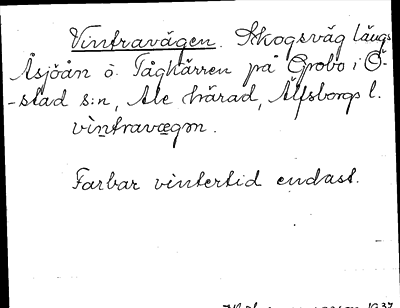 Vintravägen. Skogsväg längs
Åsjöån ö. Tåghärren på Grobo i Ö-
-stad s:n, Ale härad, Älfsborgs l.
vìntravægɒn.
Farbar vintertid endast.
1937